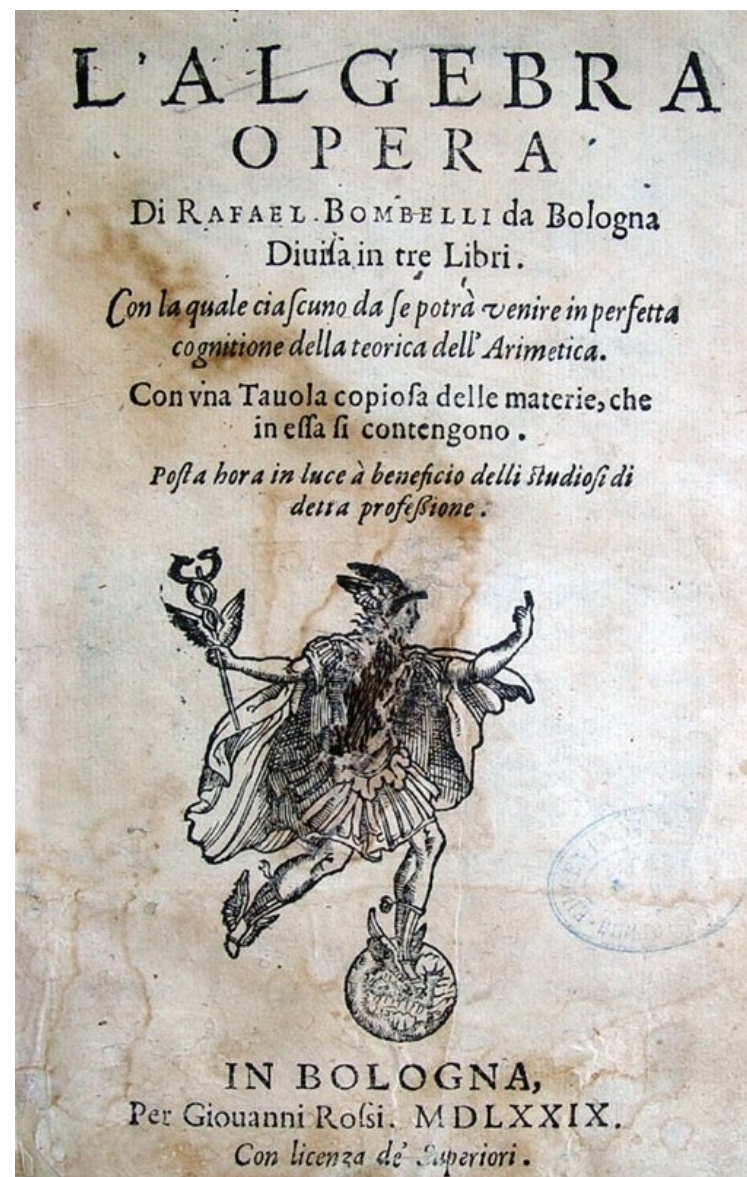 L'ALGEBRA
OPERA
Di RAFAEL BOMBELLI da Bologna
Diuiſa in tre Libri.
Con la quale ciaſcuno da ſe potrà venire in perfetta
cognitione della teorica dell'Arimetica.
Con vna Tauola copioſa delle materie, che
in eſſa ſi contengono.
Poſta hora in luce à beneficio delli ſtudioſi di
detta profeſſione.
IN BOLOGNA,
Per Giouanni Roſſi. MDLXXIX.
Con licenza de' Superiori.